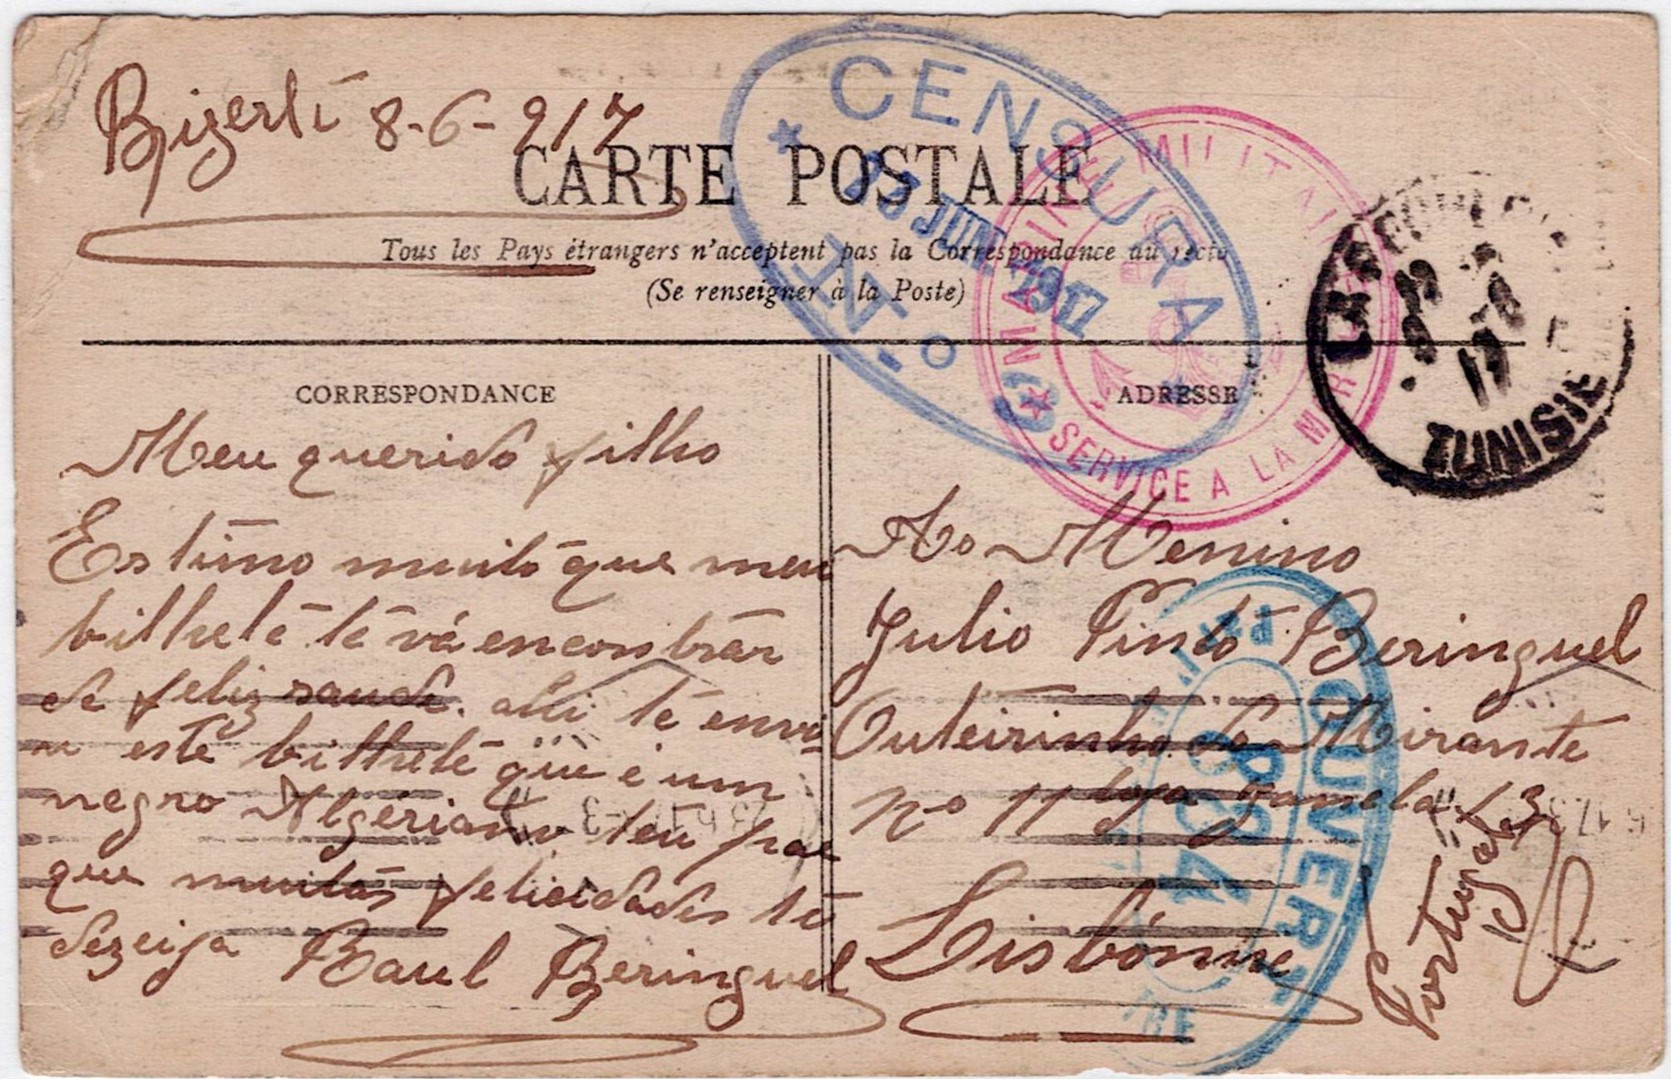 Bizerte 8-6-917
CARTE POSTALE
Tous les Pays étrangers n'acceptent pas la Correspondance au recto
(Se renseigner à la Poste)
CENSURA
JUN. 1917
N.o
MARINE MILITAIRE
SERVICE A LA MER
TUNISIE
CORRESPONDANCE
ADRESSE
Meu querido filho
Estimo muito que meu
bilhete te vá encontrar
de feliz saude. ahi te envi
o este bilhete que é um
negro Algériano teu pae
que muitas felicidades te
dezeija Raul Beringuel
Ao Menino
Julio Pinto Beringuel
Outeirinho do Mirante
no 11 loja janela 13
Lisbonne
Portugal
OUVERT
PAR
804